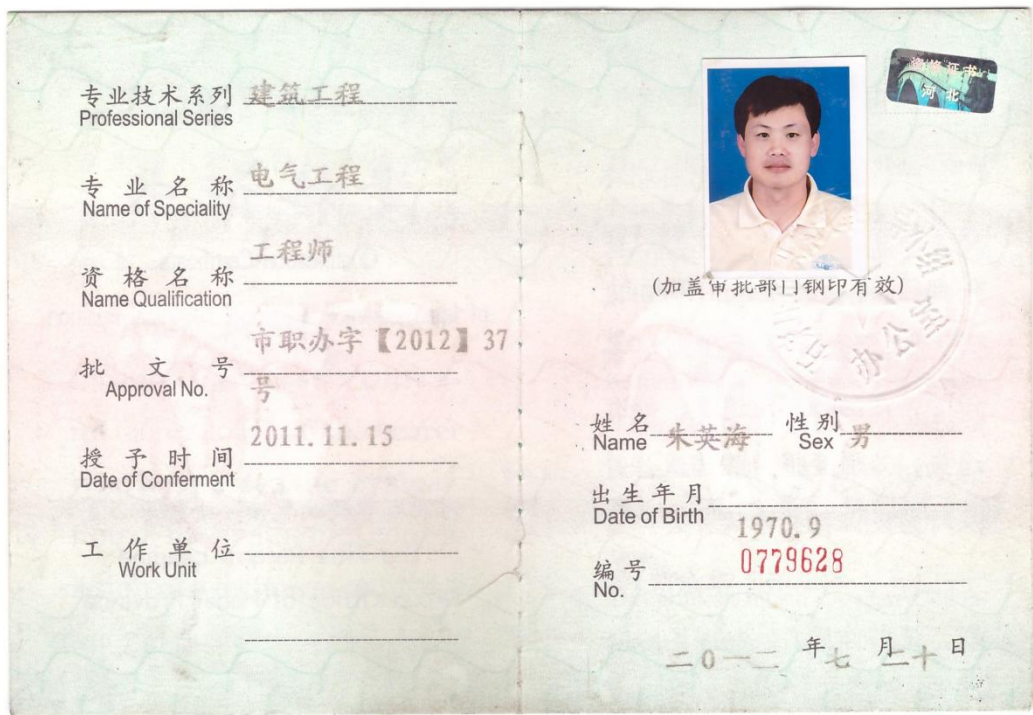 专业技术系列 建筑工程
Professional Series
专业名称 电气工程
Name of Speciality
资格名称 工程师
Name Qualification
批文号 市职办字【2012】37
Approval No. 号
授予时间 2011.11.15
Date of Conferment
工作单位
Work Unit
资格证书
河北
(加盖审批部门钢印有效)
办公室
姓名 朱英海 性别 男
Name Sex
出生年月
Date of Birth 1970.9
编号 0779628
No.
二0一二年七月二十日